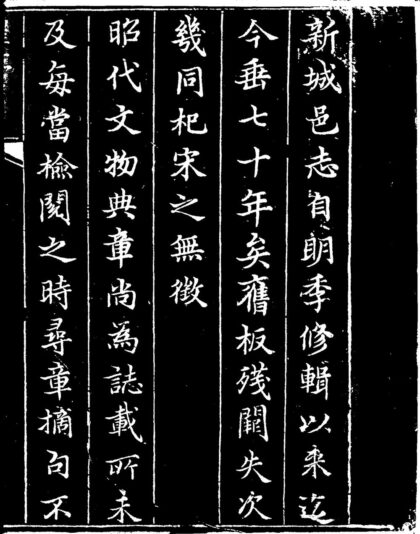 新城邑志自明季修輯以来迄
今垂七十年矣舊板殘闕失次
幾同杞宋之無徵
昭代文物典章尚為誌載所未
及每當檢閱之時尋章摘句不